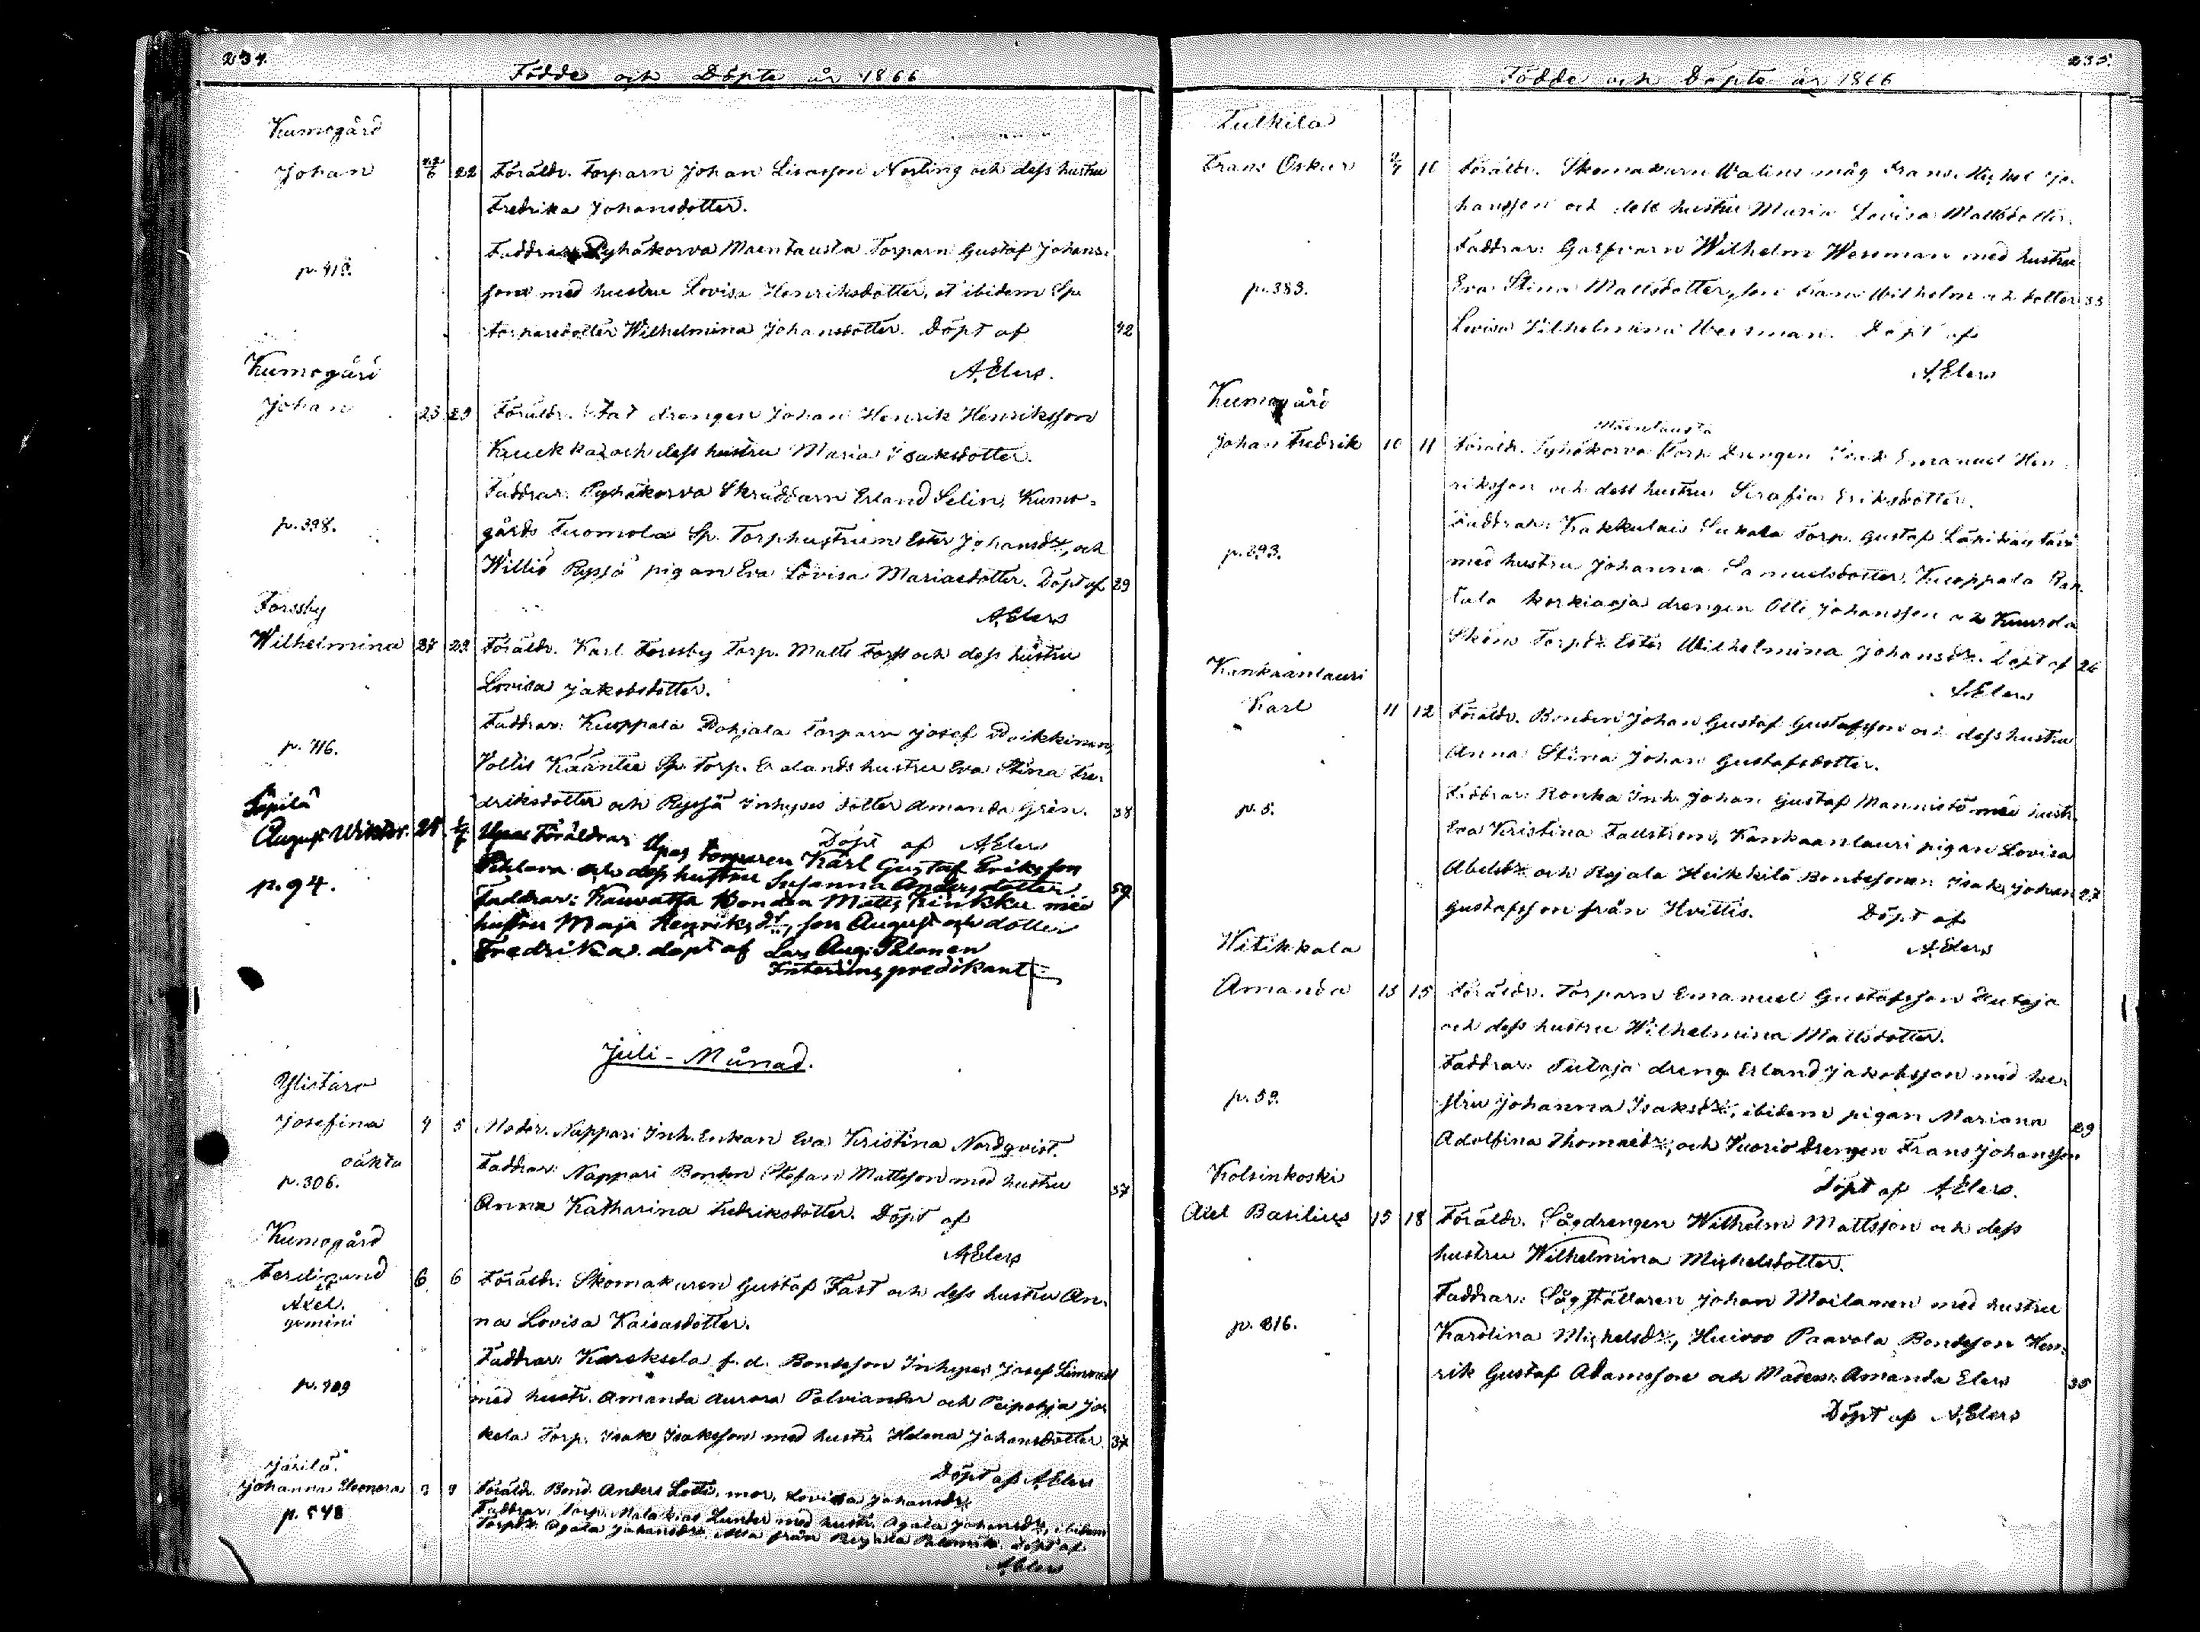 234.
Födde och Döpte år 1866
Kumogård
Johan 22/6 22 Föräldr. Torparn Johan Lisasson Norling och dess hustru
Fredrika Johansdotter.
Faddrar: Pyhäkorva Maentausta Torparn Gustaf Johans-
p. 413. son med hustru Lovisa Henriksdotter, et ibidem Sp.
torparedotter Wilhelmina Johansdotter. Döpt af 42
A. Elers.
Kumogård
Johan 23 29 Föräldr. drengen Johan Henrik Henriksson
Kruekka och dess hustru Maria Isaksdotter.
Faddrar: Pyhäkorva Skräddarn Erland Selin, Kumo-
p. 398. gårds Tuomola Sp. Torphustrun Ester Johansdr, och
Willio Ryssä pigan Eva Lovisa Mariasdotter. Döpt af 29
A. Elers
Forssby
Wilhelmina 27 29 Föräldr. Karl Forssby Torp. Matts Forss och dess hustru
Lovisa Jakobsdotter.
Faddrar: Kuoppala Pohjala Torparn Josef Poikkinen,
p. 716. Voltis Kääntee Sp. Torp. Erlands hustru Eva Stina Fre-
driksdotter och Ryssä Inhyses dotter Amanda Grén. 38
Döpt af A. Elers
Sepilä
August Wiktor. 28 Föräldrar Torparen Karl Gustaf Eriksson
och dess hustru Susanna Andersdotter 59
p. 94. Faddrar: Kauvatsa Bonden Matts Kinkku med
hustru Maja Henriksdr, son August och dotter
Fredrika. döpt af Lars Aug. Palanen
Interimspredikant
Juli-Månad.
Ylistaro
Josefina 4 5 Moder. Nappari Inh. Enkan Eva Kristina Nordqvist.
oäkta Faddrar: Nappari Bonden Stefan Mattsson med hustru 37
p. 306. Anna Katharina Fredriksdotter. Döpt af
A. Elers
Kumogård
Ferdinand 6 6 Föräldr: Skomakaren Gustaf Fast och dess hustru An-
et
Axel. na Lovisa Kaisasdotter.
gemini
Faddrar: Kareksela f.d. Bondeson Inhyses Josef
p. 409 med hustr. Amanda Aurora Polviander och Peipohja Jo-
kela Torp. Isak Isaksson med hustr. Helena Johansdotter 37
Döpt af A. Elers
Järilä.
Johanna Eleonora 3 Föräldr. Bond. Anders Lotti, mor, Lovisa Johansdr
p. 548 Faddrar: Torp. Malakias Lunder med hustr. Agata Johansdr, ibidem
Torpdr Agata Johansdr från Döpt af
A. Elers
235.
Födde och Döpte år 1866
Tulkila
Frans Oskar 9/7 10 Föräldr. Skomakarn Walins måg Frans Michel Jo-
hansson och dess hustru Maria Lovisa Mattsdotter.
Faddrar: Wilhelm Wessman med hustru
p. 383. Eva Stina Mattsdotter, son Frans Wilhelm och dotter 33
Lovisa Vilhelmina Wessman. Döpt af
A. Elers
Kumogård
Maentausta
Johan Fredrik 10 11 Föräldr. Pyhäkorva Torp Drengen Isak Emanuel Hen-
riksson och dess hustru Serafia Eriksdotter.
Faddrar: Kakkulais Sukala Torp. Gustaf
p. 293. med hustru Johanna Samuelsdotter, Kuoppala
korkiaoja drengen Otto Johansson och Kuurola
Torpdr Ester Wilhelmina Johansdr. Döpt af 26
A. Elers
Kankaanlauri
Karl 11 12 Föräldr. Bonden Johan Gustaf Gustafsson och dess hustru
Anna Stina Johan Gustafsdotter.
p. 5. Faddrar: Ronka Inh. Johan Gustaf Mannistö med hustr.
Eva Kristina Fallström, Kankaanlauri pigan Lovisa
Abelsdr och Rojala Heikkilä Bondesonen Isak Johan 27
Gustafsson från Hvittis. Döpt af
A. Elers
Witikkala
Amanda 13 15 Föräldr. Torparn Emanuel Gustafsson Hutaja
och dess hustru Wilhelmina Mattsdotter.
Faddrar: dreng Erland Jakobsson med hu-
p. 59. stru Johanna Isaksdr, ibidem pigan Mariana 29
Adolfina Thomasdr, och Vuorio drengen Frans Johansson
Döpt af A. Elers.
Kolsinkoski
Axel Basilius 15 18 Föräldr. Sågdrengen Wilhelm Mattsson och dess
hustru Wilhelmina Michelsdotter.
Faddrar: Sågställaren Johan Moilanen med hustru
p. 816. Karolina Michelsdr, Huivoo Paavola Bondeson Hen-
rik Gustaf Adamsson och Madem: Amanda Elers 35
Döpt af A. Elers